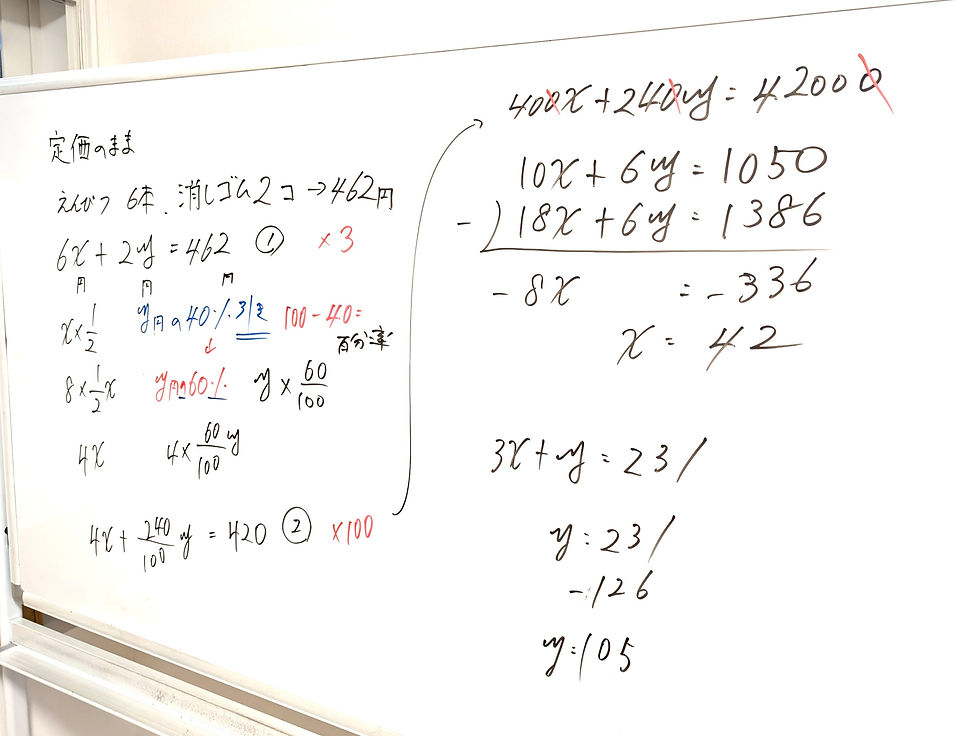 定価のまま
えんぴつ 6本、消しゴム2コ→462円
6x + 2y = 462 ① ×3
円 円 円
x×1/2 y円の40%引き 100-40=
↓ 百分率
8×1/2x y円の60% y×60/100
4x 4×60/100y
4x + 240/100y = 420 ② ×100
400x + 240y = 42000
10x + 6y = 1050
-) 18x + 6y = 1386
-8x = -336
x = 42
3x + y = 231
y = 231
-126
y = 105